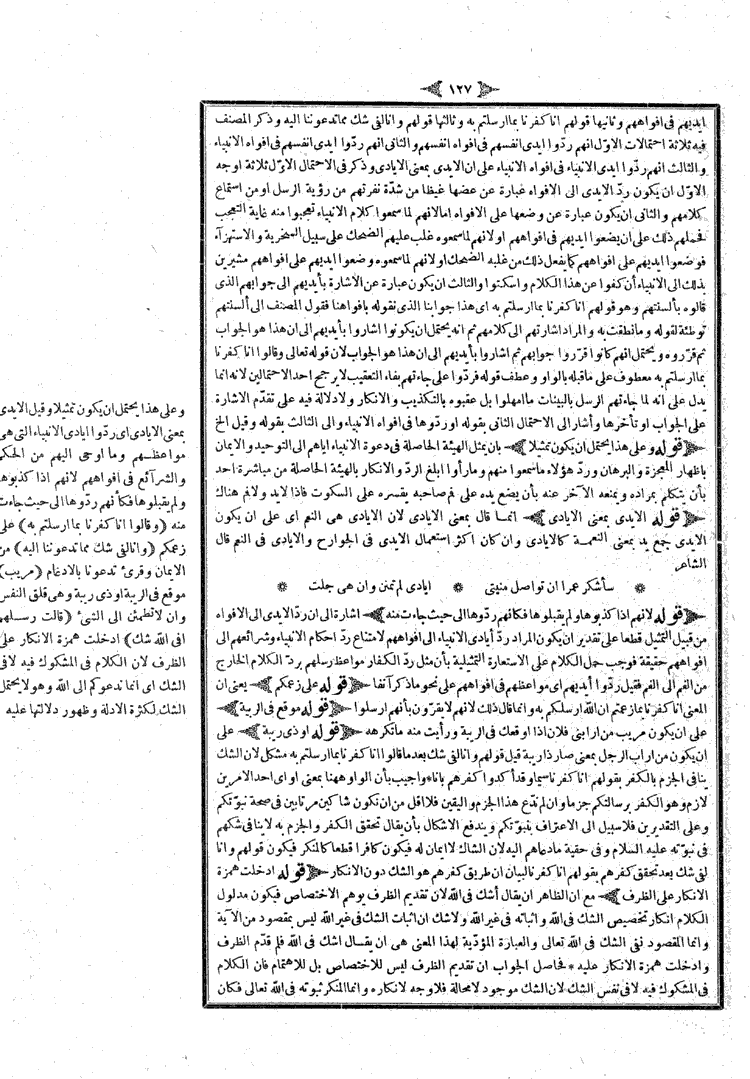 ١٢٧
ايديهم فى افواههم وثانيها قولهم انا كفرنا بما ارسلتم به وثالثها قولهم وانا لفى شك مما تدعوننا اليه وذكر المصنف
فيه ثلاثة احتمالات الاوّل انهم ردّوا ايدى انفسهم فى افواه انفسهم والثانى انهم ردّوا ايدى انفسهم فى افواه الانبياء
والثالث انهم ردّوا ايدى الانبياء فى افواه الانبياء على ان الايدى بمعنى الايادى وذكر فى الاحتمال الاوّل ثلاثة اوجه
الاوّل ان يكون ردّ الايدى الى الافواه عبارة عن عضها غيظا من شدّة نفرتهم من رؤية الرسل او من استماع
كلامهم والثانى ان يكون عبارة عن وضعها على الافواه اما لانهم لما سمعوا كلام الانبياء تعجبوا منه غاية التعجب
فحملهم ذلك على ان يضعوا ايديهم فى افواههم او لانهم لما سمعوه غلب عليهم الضحك على سبيل السخرية والاستهزآء
فوضعوا ايديهم على افواههم كما يفعل ذلك من غلبه الضحك او لانهم لما سمعوه وضعوا ايديهم على افواههم مشيرين
بذلك الى الانبياء أن كفوا عن هذا الكلام واسكتوا والثالث ان يكون عبارة عن الاشارة بأيديهم الى جوابهم الذى
قالوه بألسنتهم وهو قولهم انا كفرنا بما ارسلتم به اى هذا جوابنا الذى نقوله بافواهنا فقول المصنف الى ألسنتهم
توطئة لقوله وما نطقت به والمراد اشارتهم الى كلامهم ثم انه يحتمل ان يكونوا اشاروا بأيديهم الى ان هذا هو الجواب
ثم قرّروه ويحتمل انهم كانوا قرّروا جوابهم ثم اشاروا بأيديهم الى ان هذا هو الجواب لان قوله تعالى وقالوا انا كفرنا
بما ارسلتم به معطوف على ما قبله بالواو وعطف قوله فردّوا على جاءتهم بفاء التعقيب لا يرجح احد الاحتمالين لانه انما
يدل على انه لما جاءتهم الرسل بالبينات ما امهلوا بل عقبوه بالتكذيب والانكار ولا دلالة فيه على تقدّم الاشارة
على الجواب او تأخرها وأشار الى الاحتمال الثانى بقوله او ردّوها فى افواه الانبياء والى الثالث بقوله وقيل الخ
﴿قوله وعلى هذا يحتمل ان يكون تمثيلا﴾ بان يمثل الهيئة الحاصلة فى دعوة الانبياء اياهم الى التوحيد والايمان
باظهار المعجزة والبرهان وردّ هؤلاء ما سمعوا منهم وما رأوا ابلغ الردّ والانكار بالهيئة الحاصلة من مباشرة احد
بأن يتكلم بمراده ويمنعه الآخر عنه بأن يضع يده على فم صاحبه بقسره على السكوت فاذا لايد ولا فم هناك
﴿قوله الايدى بمعنى الايادى﴾ انما قال بمعنى الايادى لان الايادى هى النعم اى على ان يكون
الايدى جمع يد بمعنى النعمة كالايادى وان كان اكثر استعمال الايدى فى الجوارح والايادى فى النعم قال
الشاعر
سأشكر عمرا ان تواصل منيتى * ايادى لم تمنن وان هى جلت *
﴿قوله لانهم اذا كذبوها ولم يقبلوها فكأنهم ردّوها الى حيث جاءت منه﴾ اشارة الى ان ردّ الايدى الى الافواه
من قبيل التمثيل قطعا على تقدير ان يكون المراد ردّ أيادى الانبياء الى افواههم لامتناع ردّ احكام الانبياء وشرائعهم الى
افواههم حقيقة فوجب حمل الكلام على الاستعارة التمثيلية بأن مثل ردّ الكفار مواعظ رسلهم بردّ الكلام الخارج
من الفم الى الفم فقيل ردّوا أيديهم اى مواعظهم فى افواههم على نحو ما ذكر آنفا ﴿قوله على زعمكم﴾ يعنى ان
المعنى انا كفرنا بما زعمتم ان الله ارسلكم به وانما قال ذلك لانهم لا يقرّون بأنهم ارسلوا ﴿قوله موقع فى الريبة﴾
على ان يكون مريب من ارابنى فلان اذا اوقعك فى الريبة ورأيت منه ما تكرهه ﴿قوله او ذى ريبة﴾ على
ان يكون من اراب الرجل بمعنى صار ذا ريبة قيل قولهم وانا لفى شك بعد ما قالوا انا كفرنا بما ارسلتم به مشكل لان الشك
ينافى الجزم بالكفر بقولهم انا كفرنا سيما وقد أكدوا كفرهم بانا * واجيب بأن الواو ههنا بمعنى او اى احد الامرين
لازم وهو الكفر برسالتكم جزما وان لم ندّع هذا الجزم واليقين فلا اقل من ان نكون شاكين مرتابين فى صحة نبوّتكم
وعلى التقديرين فلا سبيل الى الاعتراف بنبوّتكم ويندفع الاشكال بأن يقال تحقق الكفر والجزم به لا ينافى شكهم
فى نبوّته عليه السلام وفى حقية ما دعاهم اليه لان الشاك لا ايمان له فيكون كافرا قطعا كالمنكر فيكون قولهم وانا
لفى شك بعد تحقق كفرهم بقولهم انا كفرنا لبيان ان طريق كفرهم هو الشك دون الانكار ﴿قوله ادخلت همزة
الانكار على الظرف﴾ مع ان الظاهر ان يقال أشك فى الله لان تقديم الظرف يوهم الاختصاص فيكون مدلول
الكلام انكار تخصيص الشك فى الله واثباته فى غير الله ولا شك ان اثبات الشك فى غير الله ليس بمقصود من الآية
وانما المقصود نفى الشك فى الله تعالى والعبارة المؤدّية لهذا المعنى هى ان يقال اشك فى الله فلم قدّم الظرف
وادخلت همزة الانكار عليه * فحاصل الجواب ان تقديم الظرف ليس للاختصاص بل للاهتمام فان الكلام
فى المشكوك فيه لا فى نفس الشك لان الشك موجود لا محالة فلا وجه لانكاره وانما المنكر ثبوته فى الله تعالى فكان
وعلى هذا يحتمل ان يكون تمثيلا وقيل الايدى
بمعنى الايادى اى ردّوا ايادى الانبياء التى هى
مواعظهم وما اوحى اليهم من الحكم
والشرآئع فى افواههم لانهم اذا كذبوها
ولم يقبلوها فكأنهم ردّوها الى حيث جاءت
منه (وقالوا انا كفرنا بما ارسلتم به) على
زعمكم (وانا لفى شك مما تدعوننا اليه) من
الايمان وقرئ تدعونا بالادغام (مريب)
موقع فى الريبة او ذى ريبة وهى قلق النفس
وان لا تطمئن الى الشئ (قالت رسلهم
افى الله شك) ادخلت همزة الانكار على
الظرف لان الكلام فى المشكوك فيه لا فى
الشك اى انما ندعوكم الى الله وهو لا يحتمل
الشك لكثرة الادلة وظهور دلالتها عليه